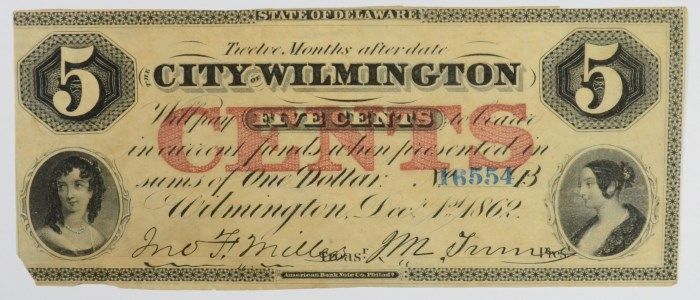 STATE OF DELAWARE
5 Twelve Months after date 5
THE CITY OF WILMINGTON
Will pay FIVE CENTS to bearer
CENTS
in current funds when presented in
sums of One Dollar. No 16554 B
Wilmington, Dec.r 1st 1862
Jno F. Miller Treas.r J.M. Pres.
American Bank Note Co. Philad.a